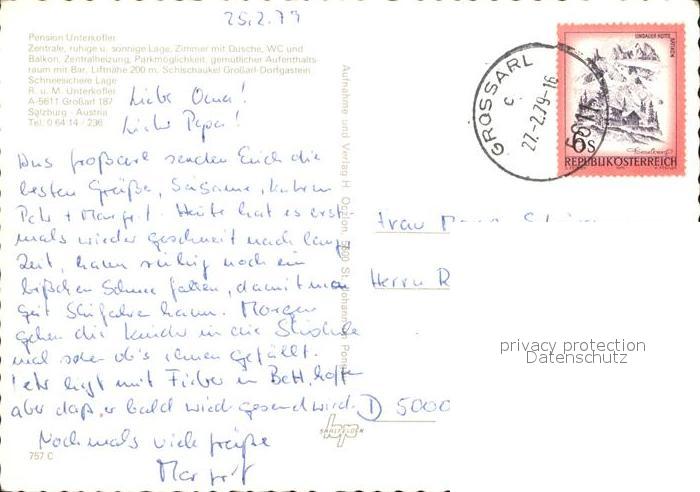 25.2.79
Pension Unterkofler
Zentrale, ruhige u. sonnige Lage, Zimmer mit Dusche, WC und
Balkon, Zentralheizung, Parkmöglichkeit, gemütlicher Aufenthalts-
raum mit Bar, Liftnähe 200 m. Schischaukel Großarl-Dorfgastein
Schneesichere Lage
R. u. M. Unterkofler
A-5611 Großarl 187
Salzburg - Austria
Tel: 0 64 14 - 236
Liebe Oma!
Lieber Papa!
Aus Großarl senden Euch die
besten Grüße, Susanne, Kathrin
Pete + Margrit. Heute hat es erst-
mals wieder geschneit nach langer
Zeit, kann ruhig noch ein
bißchen Schnee fallen, damit man
gut Skifahren kann. Morgen
gehen die Kinder in die Skischule
mal sehen ob's ihnen gefällt.
liegt mit Fieber im Bett, hoffe
aber daß er bald wieder gesund wird.
Nochmals viele Grüße
Margrit
757 C
Aufnahme und Verlag H. 5600 St. Johann im Pongau
SAALFELDEN
GROSSARL
C
27.-2.79-16
5611
LINDAUER HÜTTE
6S
REPUBLIK ÖSTERREICH
Frau
Herrn R
D 5000
privacy protection
Datenschutz